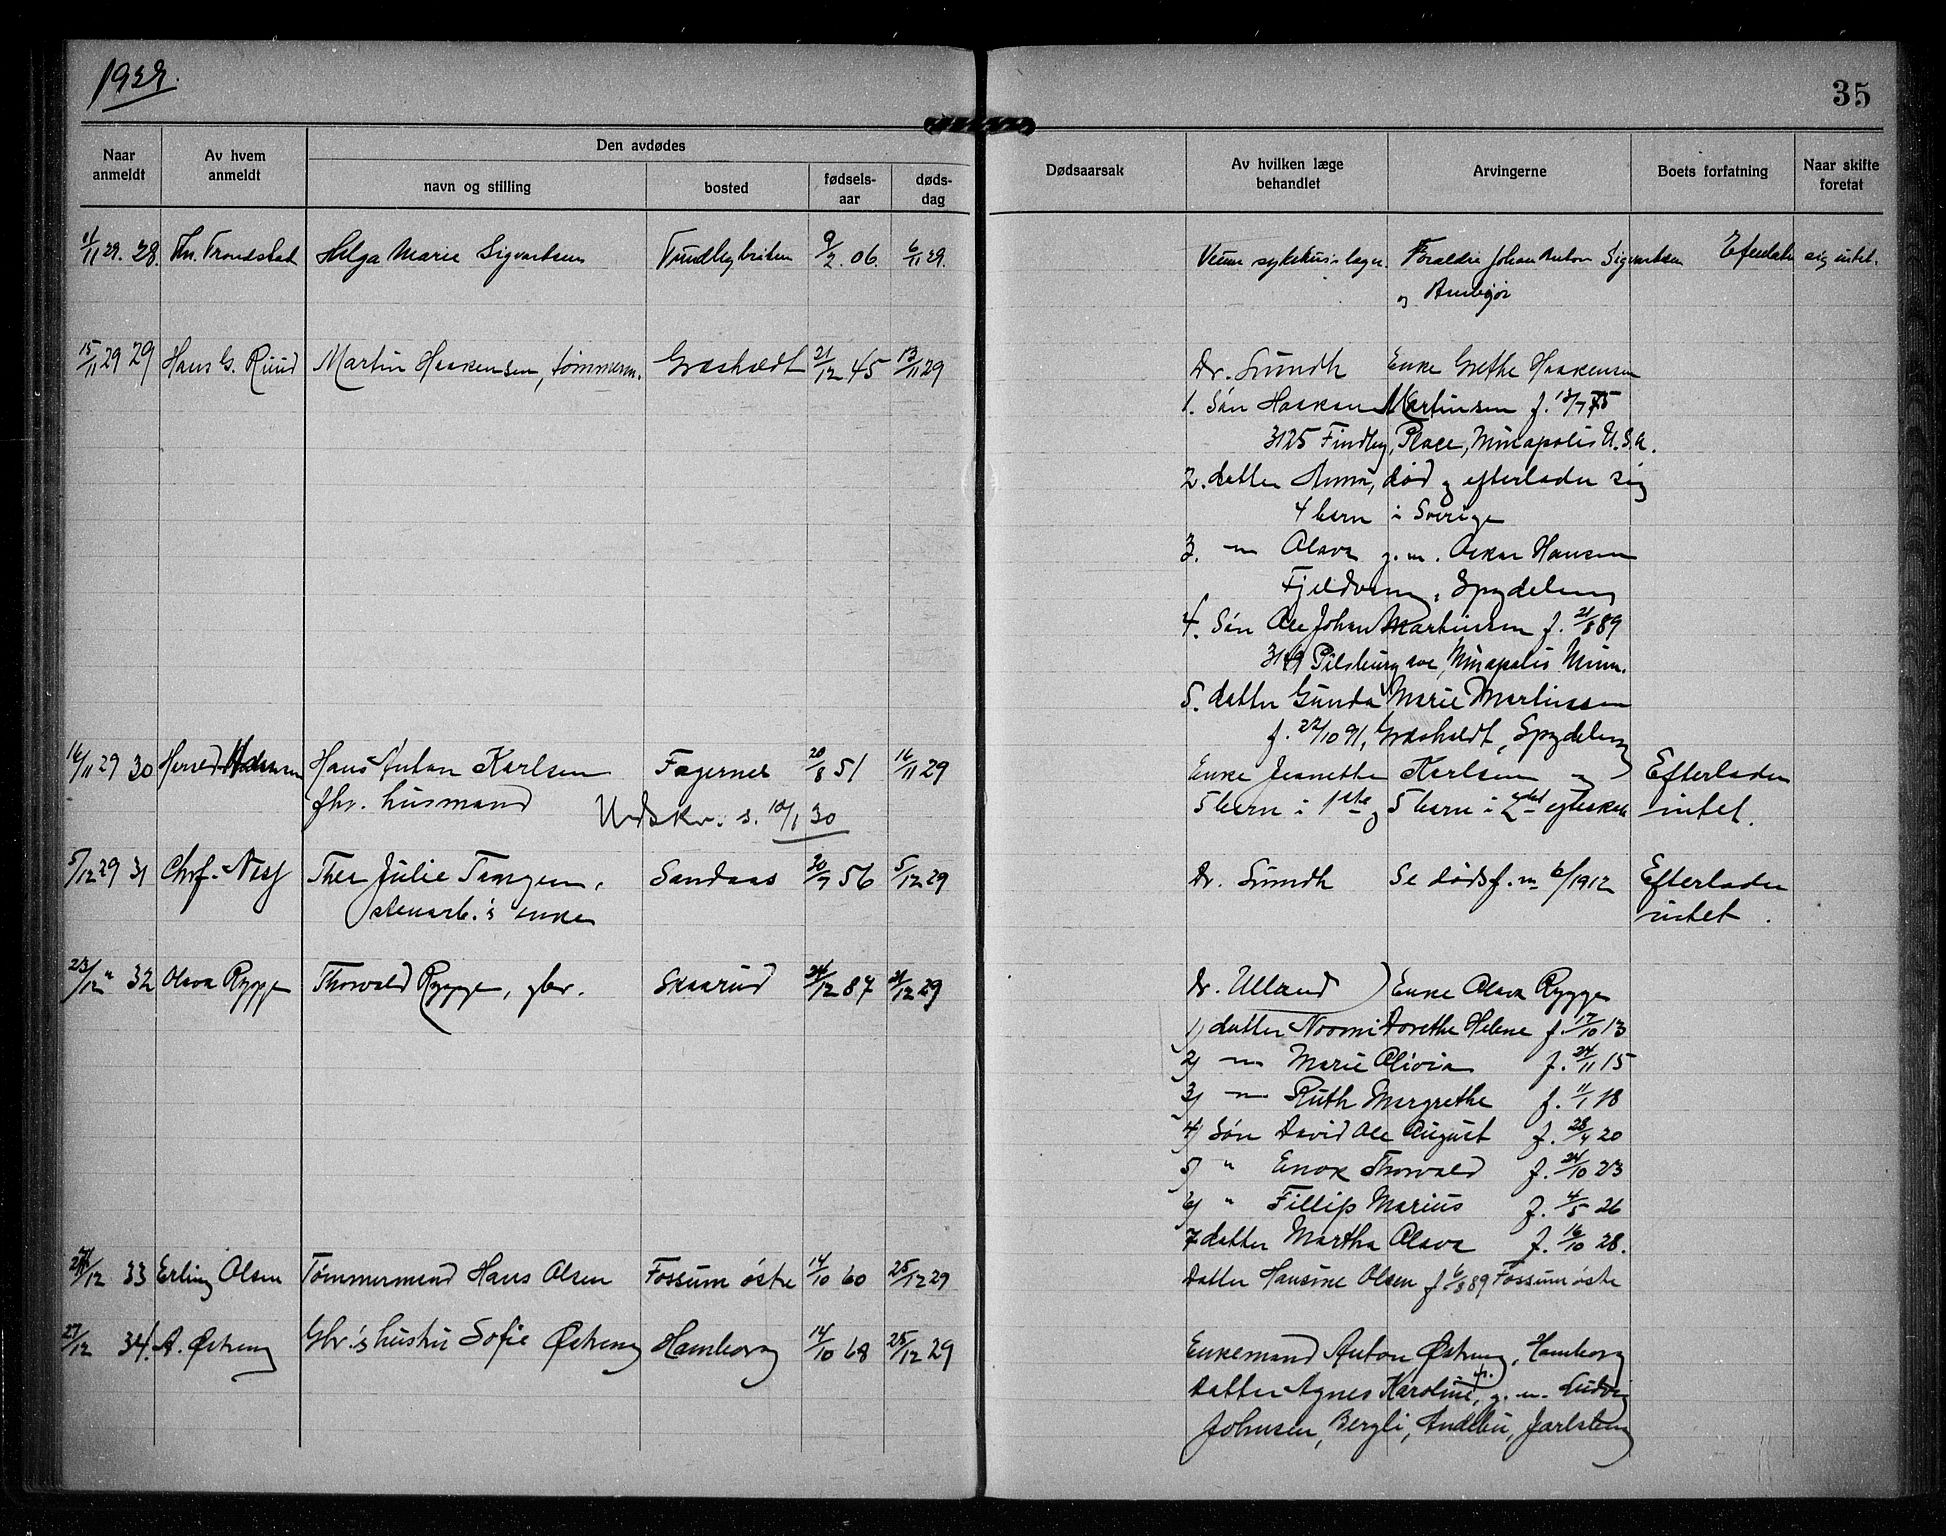 1929.
35
Naar anmeldt
Av hvem anmeldt
Den avdødes
navn og stilling
bosted
fødsels-aar
døds-dag
Dødsaarsak
Av hvilken læge behandlet
Arvingerne
Boets forfatning
Naar skifte foretat
11/11 29. 28. Th. Trondstad Helga Marie Sigvartsen 9/2. 06. 6/11 29. sykehus's læge. Foreldre Johan Anton Sigvartsen Efterlater sig intet.
og
15/11 29 29 Hans G. Ruud Martin Haakensen, tømmerm. Græsholdt 21/12 45 13/11 29 Dr. Lundh Enke Grethe Haakensen
1. Søn Haakon Martinsen f. 75
3125 Findley Place, Minapolis U.S.A.
2. datter Anna, død og efterlader sig
4 barn i Sverige
3. —"— Olava g.m. Oskar Hansen
Spydeberg
4. Søn Ole Johan Martinsen f. 21/8 89
3149 Pilsburg ave, Minapolis Minn.
5. datter Gunda Marie Martinsen
f. 22/10 91, Græsholdt, Spydeberg
16/11 29 30 Hans Anton Karlsen Fagernes 20/8 51 16/11 29 Enke Jeanette Karlsen og Efterlader
fhv. husmand Udskr. s. 10/1 30 5 barn i 1ste og 5 barn i 2det egteskab intet.
5/12 29 31 Chrf. Næs Thea Julie Tangen, Sandaas 30/7 56 5/12 29 Dr. Lundh Se dødsf. m 6/1912 Efterlader
stenarb.'s enke intet.
23/12 " 32 Olava Rygge Thorvald Rygge, gbr. Skaarud 24/12 87 21/12 29 Dr. Ulland Enke Olava Rygge
1) datter Noomi Dorethe Helene f. 17/10 13
2) —"— Marie Olivia f. 24/11 15
3) —"— Ruth Margrethe f. 11/1 18
4) Søn David Ole August f. 28/4 20
5) " Enok Thorvald f. 24/10 23
6) " Fillip Marius f. 4/5 26
7 datter Martha Olava f. 16/10 28.
27/12 33 Erling Olsen Tømmermand Hans Olsen Fossum østre 14/10 60 25/12 29 Datter Hansine Olsen f. 6/8 89 Fossum østre
27/12 34. A. Østreng Gbr.'s hustru Sofie Østreng Hamborg 14/10 68 25/12 29 Enkemand Anton Østreng, Hamborg
Datter Agnes Karoline, g. m. Ludvig
Johnsen, Bergli, Andebu, Jarlsberg